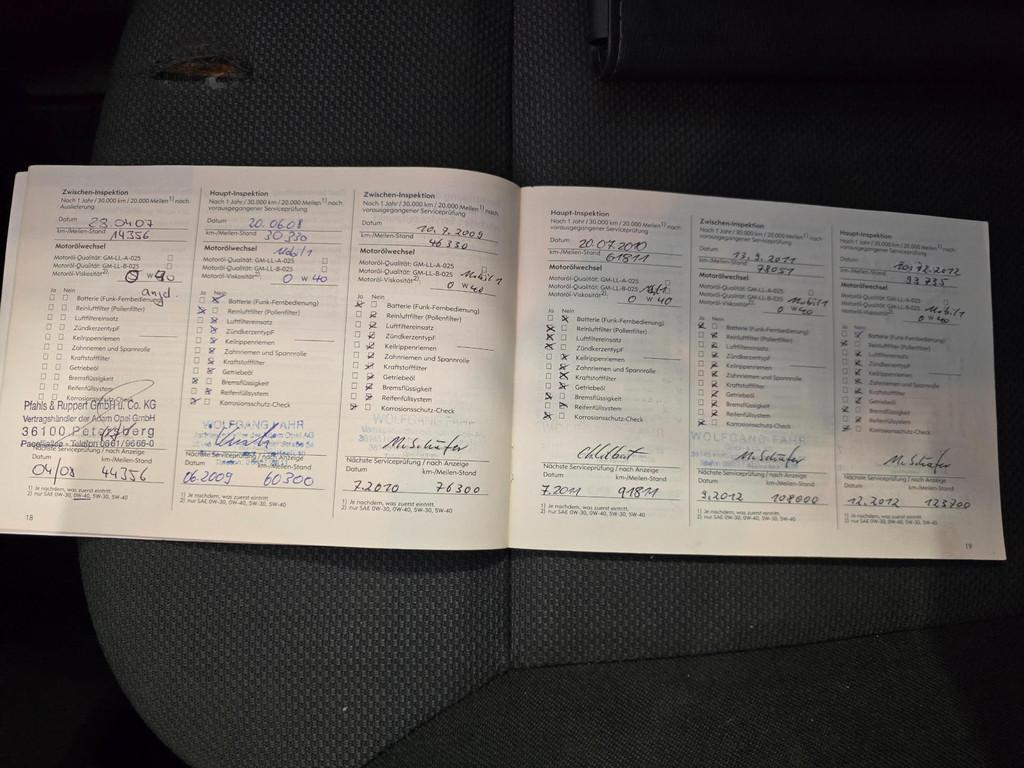 Zwischen-Inspektion
Nach 1 Jahr / 30.000 km / 20.000 Meilen1) nach
Auslieferung
Datum 23.04.07
km-/Meilen-Stand 14356
Motorölwechsel
Motoröl-Qualität: GM-LL-A-025
Motoröl-Qualität: GM-LL-B-025
Motoröl-Viskosität2): 0 W 40
Ja Nein
Batterie (Funk-Fernbedienung)
Reinluftfilter (Pollenfilter)
Luftfiltereinsatz
Zündkerzentyp
Keilrippenriemen
Zahnriemen und Spannrolle
Kraftstofffilter
Getriebeöl
Bremsflüssigkeit
Reifenfüllsystem
Korrosionsschutz-Check
Pfahls & Ruppert GmbH u. Co. KG
Vertragshändler der Adam Opel GmbH
36100 Petersberg
Telefon 0661/9665-0
Nächste Serviceprüfung / nach Anzeige
Datum km-/Meilen-Stand
04/08 44356
1) Je nachdem, was zuerst eintritt.
2) nur SAE 0W-30, 0W-40, 5W-30, 5W-40
18
Haupt-Inspektion
Nach 1 Jahr / 30.000 km / 20.000 Meilen1) nach
vorausgegangener Serviceprüfung
Datum 20.06.08
km-/Meilen-Stand 30330
Motorölwechsel Mobil 1
Motoröl-Qualität: GM-LL-A-025
Motoröl-Qualität: GM-LL-B-025
Motoröl-Viskosität2): 0 W 40
Ja Nein
Batterie (Funk-Fernbedienung)
Reinluftfilter (Pollenfilter)
Luftfiltereinsatz
Zündkerzentyp
Keilrippenriemen
Zahnriemen und Spannrolle
Kraftstofffilter
Getriebeöl
Bremsflüssigkeit
Reifenfüllsystem
Korrosionsschutz-Check
WOLFGANG FAHR
Nächste Serviceprüfung / nach Anzeige
Datum km-/Meilen-Stand
06.2009 60300
1) Je nachdem, was zuerst eintritt.
2) nur SAE 0W-30, 0W-40, 5W-30, 5W-40
Zwischen-Inspektion
Nach 1 Jahr / 30.000 km / 20.000 Meilen1) nach
vorausgegangener Serviceprüfung
Datum 10.7.2009
km-/Meilen-Stand 46330
Motorölwechsel
Motoröl-Qualität: GM-LL-A-025
Motoröl-Qualität: GM-LL-B-025 Mobil 1
Motoröl-Viskosität2): 0 W 40
Ja Nein
Batterie (Funk-Fernbedienung)
Reinluftfilter (Pollenfilter)
Luftfiltereinsatz
Zündkerzentyp
Keilrippenriemen
Zahnriemen und Spannrolle
Kraftstofffilter
Getriebeöl
Bremsflüssigkeit
Reifenfüllsystem
Korrosionsschutz-Check
M. Schäfer
Nächste Serviceprüfung / nach Anzeige
Datum km-/Meilen-Stand
7.2010 76300
1) Je nachdem, was zuerst eintritt.
2) nur SAE 0W-30, 0W-40, 5W-30, 5W-40
Haupt-Inspektion
Nach 1 Jahr / 30.000 km / 20.000 Meilen1) nach
vorausgegangener Serviceprüfung
Datum 20.07.2010
km-/Meilen-Stand 61811
Motorölwechsel
Motoröl-Qualität: GM-LL-A-025
Motoröl-Qualität: GM-LL-B-025
Motoröl-Viskosität2): 0 W 40
Ja Nein
Batterie (Funk-Fernbedienung)
Reinluftfilter (Pollenfilter)
Luftfiltereinsatz
Zündkerzentyp
Keilrippenriemen
Zahnriemen und Spannrolle
Kraftstofffilter
Getriebeöl
Bremsflüssigkeit
Reifenfüllsystem
Korrosionsschutz-Check
Nächste Serviceprüfung / nach Anzeige
Datum km-/Meilen-Stand
7.2011 91811
1) Je nachdem, was zuerst eintritt.
2) nur SAE 0W-30, 0W-40, 5W-30, 5W-40
Zwischen-Inspektion
Nach 1 Jahr / 30.000 km / 20.000 Meilen1) nach
vorausgegangener Serviceprüfung
Datum 13.9.2011
km-/Meilen-Stand 78051
Motorölwechsel
Motoröl-Qualität: GM-LL-A-025
Motoröl-Qualität: GM-LL-B-025 Mobil 1
Motoröl-Viskosität2): 0 W 40
Ja Nein
Batterie (Funk-Fernbedienung)
Reinluftfilter (Pollenfilter)
Luftfiltereinsatz
Zündkerzentyp
Keilrippenriemen
Zahnriemen und Spannrolle
Kraftstofffilter
Getriebeöl
Bremsflüssigkeit
Reifenfüllsystem
Korrosionsschutz-Check
WOLFGANG FAHR
M. Schäfer
Nächste Serviceprüfung / nach Anzeige
Datum km-/Meilen-Stand
9.2012 108000
1) Je nachdem, was zuerst eintritt.
2) nur SAE 0W-30, 0W-40, 5W-30, 5W-40
Haupt-Inspektion
Nach 1 Jahr / 30.000 km / 20.000 Meilen1) nach
vorausgegangener Serviceprüfung
Datum
km-/Meilen-Stand 93735
Motorölwechsel
Motoröl-Qualität: GM-LL-A-025
Motoröl-Qualität: GM-LL-B-025 Mobil 1
Motoröl-Viskosität2): 0 W 40
Ja Nein
Batterie (Funk-Fernbedienung)
Reinluftfilter (Pollenfilter)
Luftfiltereinsatz
Zündkerzentyp
Keilrippenriemen
Zahnriemen und Spannrolle
Kraftstofffilter
Getriebeöl
Bremsflüssigkeit
Reifenfüllsystem
Korrosionsschutz-Check
M. Schäfer
Nächste Serviceprüfung / nach Anzeige
Datum km-/Meilen-Stand
12.2012 123700
1) Je nachdem, was zuerst eintritt.
2) nur SAE 0W-30, 0W-40, 5W-30, 5W-40
19